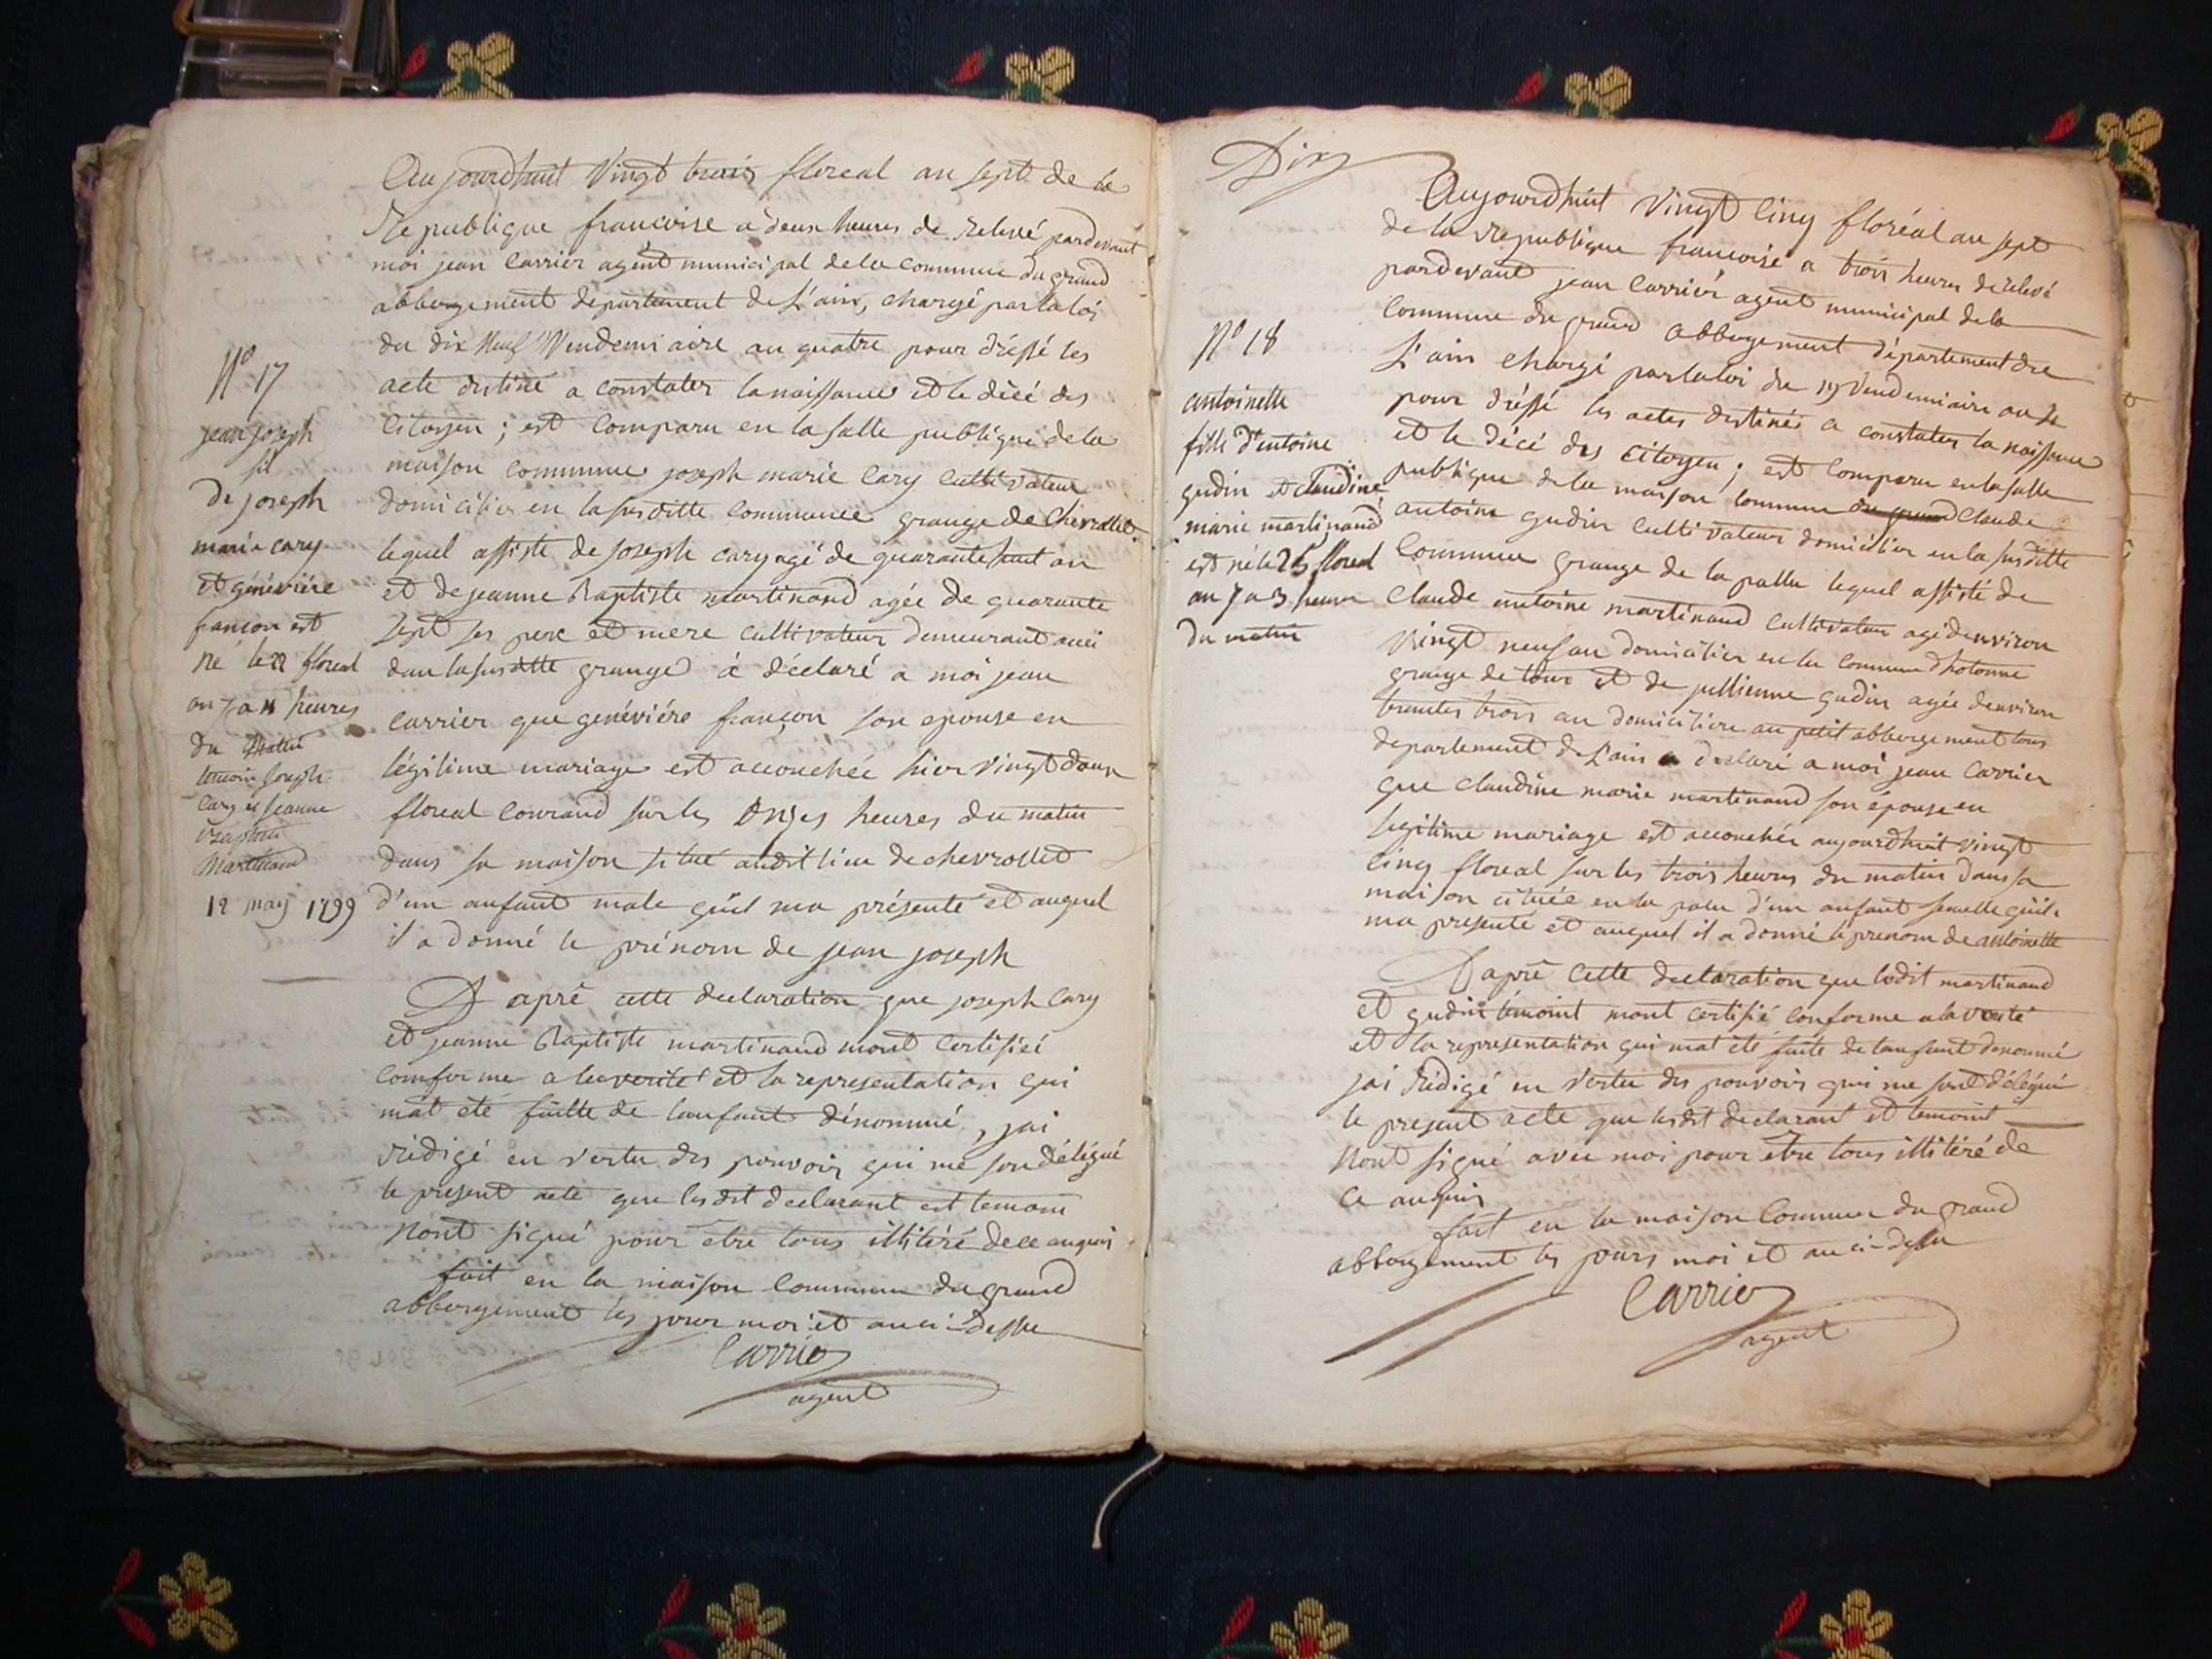 Aujourdhuit Vingt trois floreal an sept de la
Republique francoise a deux heures de Relevé pardevant
moi jean Carrier agent municipal de la Commune du grand
abbergement departement de L'ain, chargé par la loi
du dix Neuf Vendemiaire an quatre pour dréssé les
acte destiné a Constater la naissance et le décé des
Citoyen ; est Comparu en la salle publique de la
maison commune joseph marie Cary Cultivateur
domicilier en la susditte Commune grange de Chevrollet
lequel assiste de joseph cary agé de quarante huit an
et de jeanne Baptiste martinand agée de quarante
sept ses pere et mere cultivateur demeurant auci
dan la susditte grange à déclaré a moi jean
carrier que genéviére françon son epouse en
légitime mariage est accouchée hier vingt deux
floreal Courand sur les Onzes heures du matin
dans sa maison situé audit lieu de chevrollet
d'un anfant male quil ma présenté et auquel
il a donné le prénom de jean joseph
D aprê cette declaration que joseph Cary
et jeanne Baptiste martinand mont Certifiéé
Comforme a la verité et la representation qui
mat eté faitte de lanfant dénommé, jai
rédigé en vertu des pouvoir qui me son délégué
le present acte que lesdit declarant est temoin
Nont signé pour être tous illitéré de ce anquis
fait en la maison Commune du grand
abbergement les jour moi et an ci-dessu
Carrier
agent
N° 17
jean joseph
fil
De joseph
marie cary
et généviére
françon est
né le 22 floreal
an 7 a 11 heures
du Matin
temoin Joseph
Cary et Jeanne
Baptiste
Martinand
12 may 1799
Dix
Aujourdhuit Vingt Cinq floréal an sept
de la Republique francoise a trois heures de relevé
pardevant jean Carrier agent municipal de la
Commune du grand abbergement département de
L'ain chargé par la loi du 19 Vendemiaire an 4e
pour dréssé les actes destinés a Constater la naissance
et le décé des Citoyen ; est Comparu en la salle
publique de la maison Commune du grand Claude
antoine gudin Cultivateur domicilier en la susditte
Commune grange de la pallu lequel assisté de
Claude antoine martinand Cultivateur agé denviron
Vingt neuf an domicilier en la Commune d'hotonne
grange de tour et de jullienne gudin agée denviron
trentes trois an domicilière au petit abbergement tous
departement de L'ain a declaré a moi jean Carrier
que Claudine marie martinand son épouse en
legitime mariage est accouchée aujourdhuit vingt
Cinq floreal sur les trois heures du matin dans sa
maison cituée en la palu d'un anfant femelle quil
ma presenté et auquel il a donné le prenom de antoinette
D aprê Cette declaration que ledit martinand
et gudin témoint mont certifié Conforme a la verité
et la representation qui mat eté faite de lanfant denommé
jai Rédigé en vertu des pouvoir qui me sont délégué
le present acte que lesdit declarant et temoint
Nont signé avec moi pour être tous illitéré de
Ce anquis
fait en la maison Commune du grand
abbergement les jours moi et an ci-dessu
Carrier
agent
N° 18
antoinette
fille d'antoine
gudin et Claudine
marie martinand
est né le 25 floreal
an 7 a 3 heures
du matin